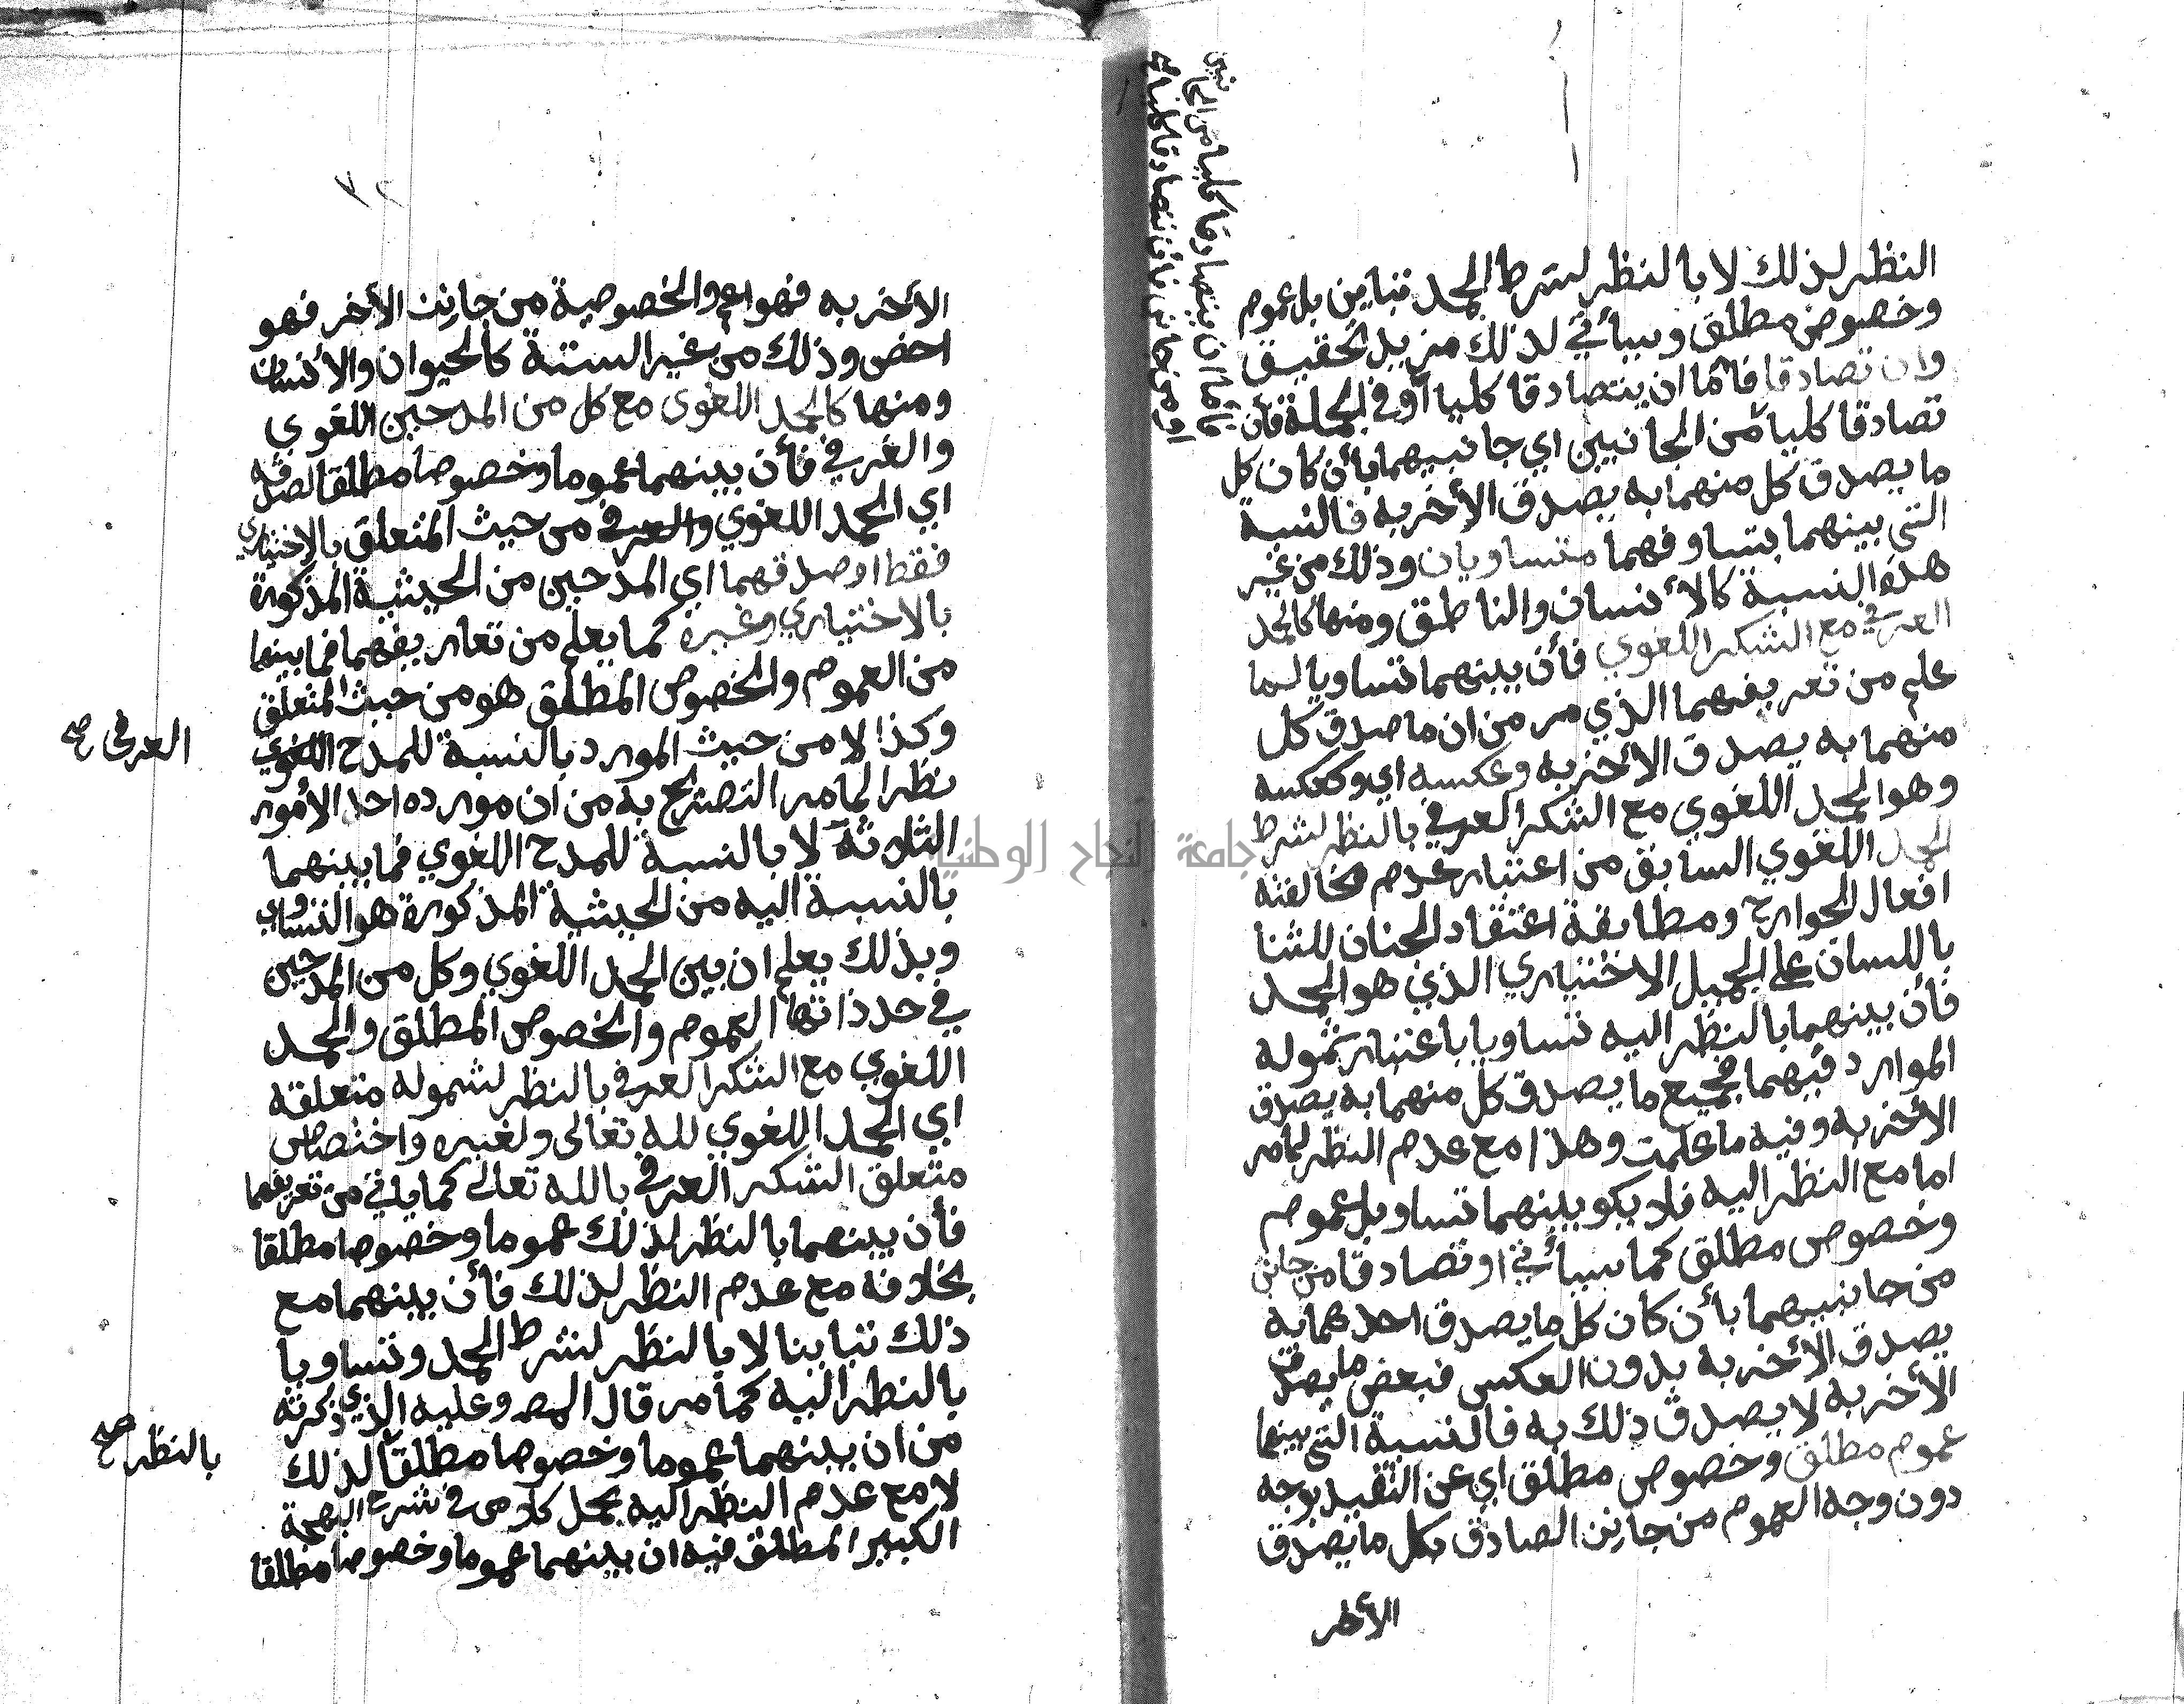 النظر لذلك لا بالنظر لشرط الحمد تباين بل عموم
وخصوص مطلق وسيأتي لذلك مزيد تحقيق
وان تصادقا فأما ان يتصادقا كليا أو في الجملة فأن
تصادقا كليا من الجانبين اي جانبيهما بأن كان كل
ما يصدق كل منهما به يصدق الأخر به فالنسبة
التي بينهما بتساو فهما متساويان وذلك من غير
هذه النسبة كالأنسان والناطق ومنها كالحمد
العرفي مع الشكر اللغوي فأن بينهما تساويا لما
علم من تعريفهما الذي مر من ان ما صدق كل
منهما به يصدق الأخر به وعكسه اي وكعكسه
وهو الحمد اللغوي مع الشكر العرفي بالنظر لشرط
الحمد اللغوي السابق من اعتبار عدم مخالفة
افعال الجوارح ومطابقة اعتقاد الجنان للثنا
باللسان على الجميل الاختياري الذي هو الحمد
فأن بينهما بالنظر اليه تساويا باعتبار شموله
الموارد فيهما فجميع ما يصدق كل منهما به يصدق
الأخر به وفيه ما علمت وهذا مع عدم النظر لما مر
اما مع النظر اليه فلا يكو بينهما تساو بل عموم
وخصوص مطلق كما سيأتي او تصادقا من جانب
من جانبيهما بأن كان كل ما يصدق احدهما به
يصدق الأخر به بدون العكس فبعض ما يصدق
الأخر به لا يصدق ذلك به فالنسبة التي بينهما
عموم مطلق وخصوص مطلق اي عن التقييد بوجه
دون وجه العموم من جانب الصادق بكل ما يصدق
الأخر
فأما ان يتصادقا كليا من الجانبين
او من جانب فأن تصادقا كليا
الأخر به فهو اعم والخصوصية من جانب الأخر فهو
اخص وذلك من غير الستة كالحيوان والأنسان
ومنها كالحمد اللغوي مع كل من المدحين اللغوي
والعرفي فأن بينهما عموما وخصوصا مطلقا لصدقه
اي الحمد اللغوي والعرفي من حيث المتعلق بالاختياري
فقط اوصدقهما اي المدحين من الحيثية المذكورة
بالاختياري وغيره كما يعلم من تعاريفهما فما بينهما
من العموم والخصوص المطلق هو من حيث المتعلق
وكذا لا من حيث المورد بالنسبة للمدح اللغوي
العرفي صح
نظرا لما مر التصريح به من ان مورده احد الأمور
الثلاثة لا بالنسبة للمدح اللغوي فما بينهما
بالنسبة اليه من الحيثية المذكورة هو التساوي
وبذلك يعلم ان بين الحمد اللغوي وكل من المدحين
في حد ذاتها العموم والخصوص المطلق والحمد
اللغوي مع الشكر العرفي بالنظر لشموله متعلقة
اي الحمد اللغوي لله تعالى ولغيره واختصاص
متعلق الشكر العرفي بالله تعالى كما يأتي من تعريفهما
فأن بينهما بالنظر لذلك عموما وخصوصا مطلقا
بخلافه مع عدم النظر لذلك فأن بينهما مع
ذلك تباينا لا بالنظر لشرط الحمد وتساويا
بالنظر اليه كما مر قال المص وعليه الذي ذكرته
من ان بينهما عموما وخصوصا مطلقا لذلك
بالنظر صح
لا مع عدم النظر اليه يحمل كلامى في شرح البهجة
الكبير المطلق فيه ان بينهما عموما وخصوصا مطلقا
جامعة النجاح الوطنية